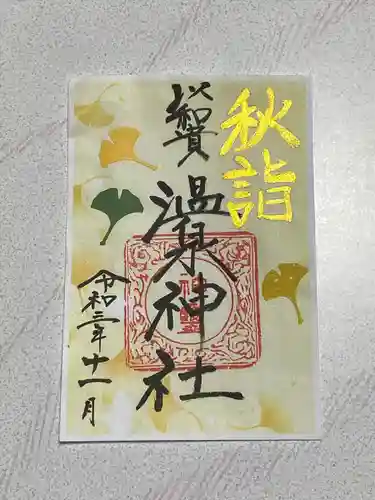 秋詣
温泉神社
令和三年十一月